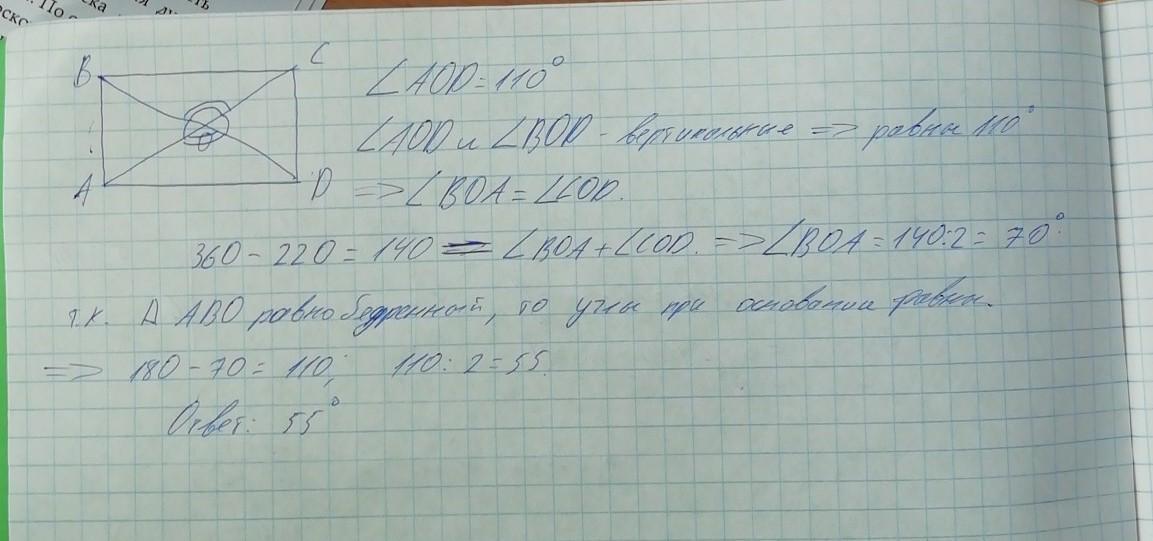 B C
A D
O
∠AOD = 110°
∠AOD и ∠BOD - вертикальные => равны 110°
=> ∠BOA = ∠COD.
360 - 220 = 140 = ∠BOA + ∠COD. => ∠BOA = 140:2 = 70°.
т.к. Δ ABO равнобедренный, то углы при основании равны.
=> 180 - 70 = 110; 110 : 2 = 55.
Ответ: 55°